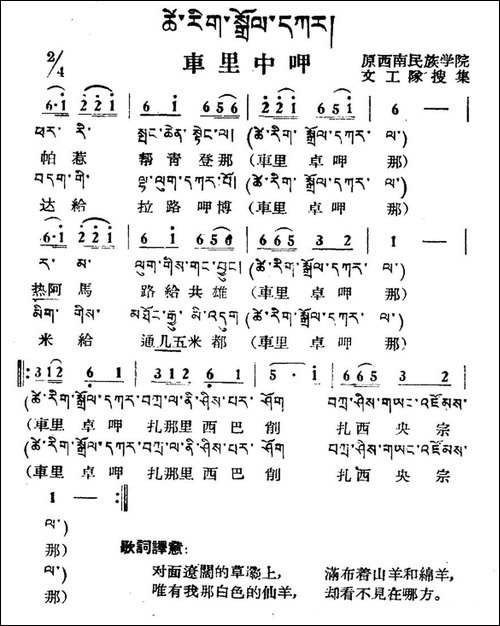 ཚེ་རིག་སྒྲོལ་དཀར།
車里中呷
2/4
原西南民族学院
文工隊搜集
6·i 2 2 i 6 i 6 5 6 2 2 i 6 5 i 6 —
ཕར་ རི་ སྤང་ཆེན་སྟེང་ལ། (ཚེ་རིག་ སྒྲོལ་དཀར་ ལ་)
帕 惹 帮青登那 (車里 卓呷 那)
བདག་གི་ ལྷ་ལུག་དཀར་པོ། (ཚེ་རིག་ སྒྲོལ་དཀར་ ལ་)
达 給 拉路呷博 (車里 卓呷 那)
6·i 2 2 i 6 i 6 5 6 6 6 5 3 2 1 —
ར་ མ་ ལུག་གིས་གང་བྱུང། (ཚེ་རིག་ སྒྲོལ་དཀར་ ལ་)
热阿 馬 路給共雄 (車里 卓呷 那)
མིག་ གིས་ མཐོང་རྒྱུ་མི་འདུག (ཚེ་རིག་ སྒྲོལ་དཀར་ ལ་)
米 給 通几五米都 (車里 卓呷 那)
‖: 3 1 2 6 1 3 1 2 6 1 5 · i 6 6 5 3 2
(ཚེ་རིག་ སྒྲོལ་དཀར་ བཀྲ་ལ་ནི་ཤིས་པར་ ཤོག བཀྲ་ཤིས་གཡང་འཛོམས་
(車里 卓呷 扎那里西巴 削 扎西 央 宗
(ཚེ་རིག་ སྒྲོལ་དཀར་ བཀྲ་ལ་ནི་ཤིས་པར་ ཤོག བཀྲ་ཤིས་གཡང་འཛོམས་
(車里 卓呷 扎那里西巴 削 扎西 央 宗
1 — :‖
ལ་)
那)
ལ་)
那)
歌詞譯意:
对面遼闊的草灞上, 滿布着山羊和綿羊,
唯有我那白色的仙羊, 却看不見在哪方。